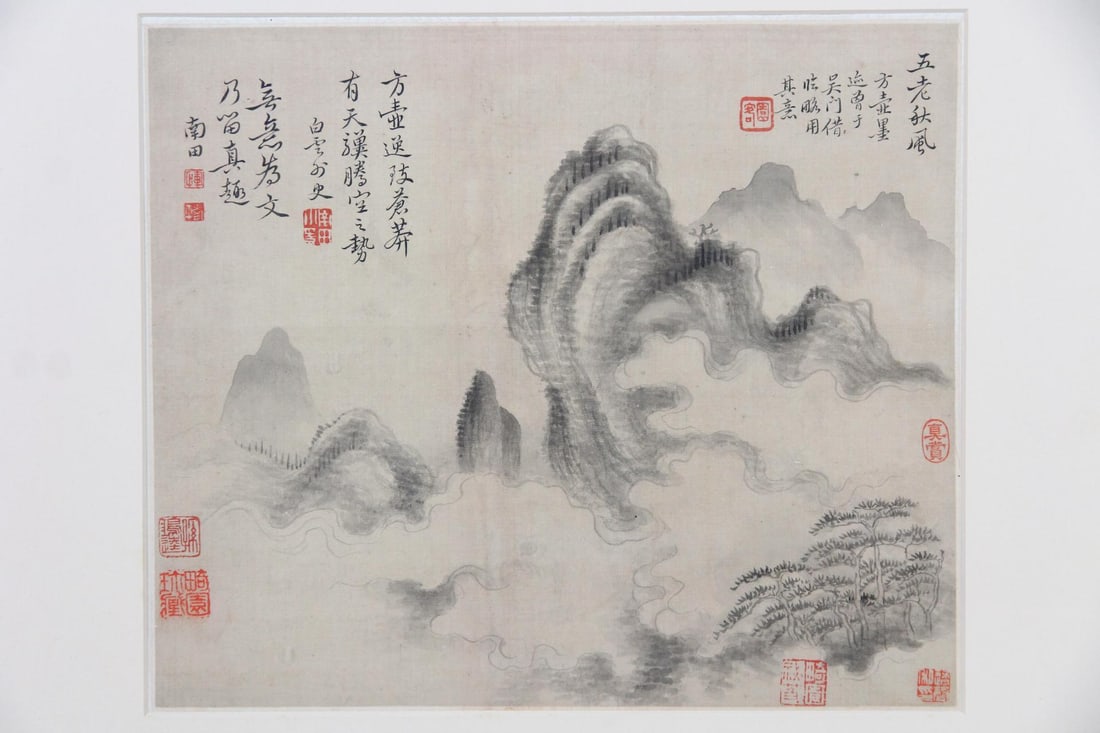 五老秋風
方壺墨
迹曾于
吳門借
臨略用
其意
方壺逸致蒼莽
有天驥騰空之勢
白雲外史
無意為文
乃留真趣
南田
真賞